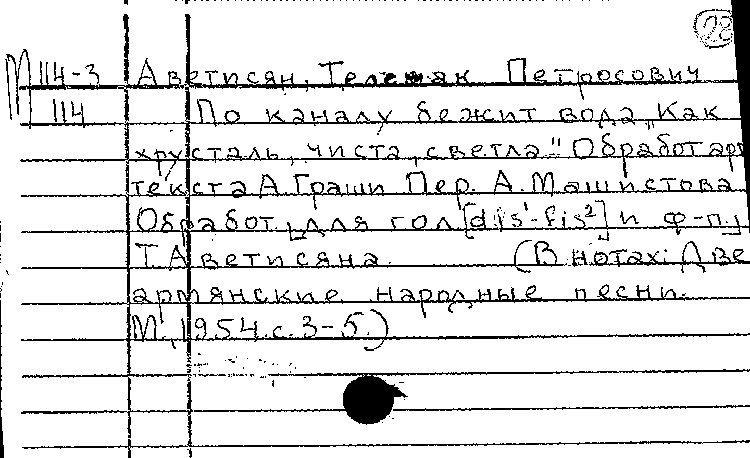 М 114-3 Аветисян, Телемак Петросович
114 По каналу бежит вода „Как
хрусталь, чиста, светла." Обработ арм
текста А. Граши Пер. А. Машистова
Обработ. для гол [dis¹-fis²] и ф-п.
Т. Аветисяна (В нотах: Две
армянские народные песни.
М., 1954. с. 3-5.)